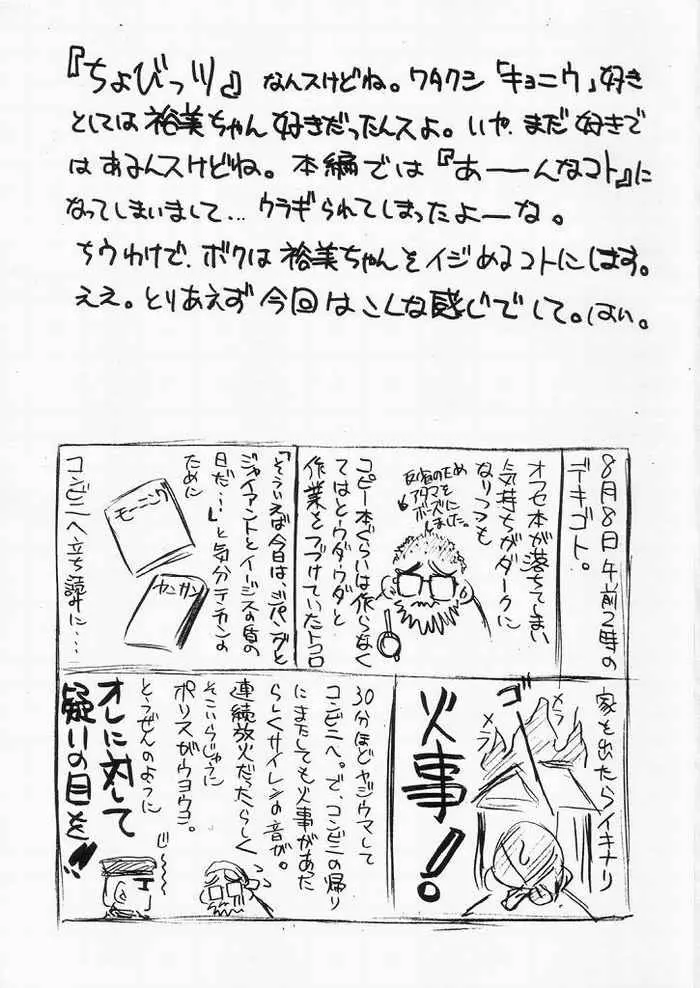 『ちょびっツ』なんスけどね。ワタクシ「キョニウ」好き
としては裕美ちゃん好きだったんスよ。いや、まだ好きで
はあるんスけどね。本編では『あーーんなコト』に
なってしまいまして…ウラギられてしまったよーな。
ちうわけで、ボクは裕美ちゃんをイジめるコトにします。
ええ。とりあえず今回はこんな感じでして。はい。
8月8日午前2時の
デキゴト。
オフセ本が落ちてしまい
気持ちがダークに
なりつつも
反省のため
アタマを
ボーズに
しました。
コピー本ぐらいは作らなく
てはとウダウダと
作業をつづけていたトコロ
「そういえば今日は、ジパングと
ジャイアントとイージスの盾の
日だ…」と気分テンカンの
ために
モーニング
ヤンサン
コンビニへ立ち読みに…
家を出たらイキナリ
メラ
ゴー
メラ
火事!
30分ほどヤジウマして
コンビニへ。で、コンビニの帰り
にまたしても火事があった
らしくサイレンの音が。
連続放火だったらしく
そこいらじゅうに
ポリスがウヨウヨ。
とうぜんのように
オレに対して
疑いの目を!!